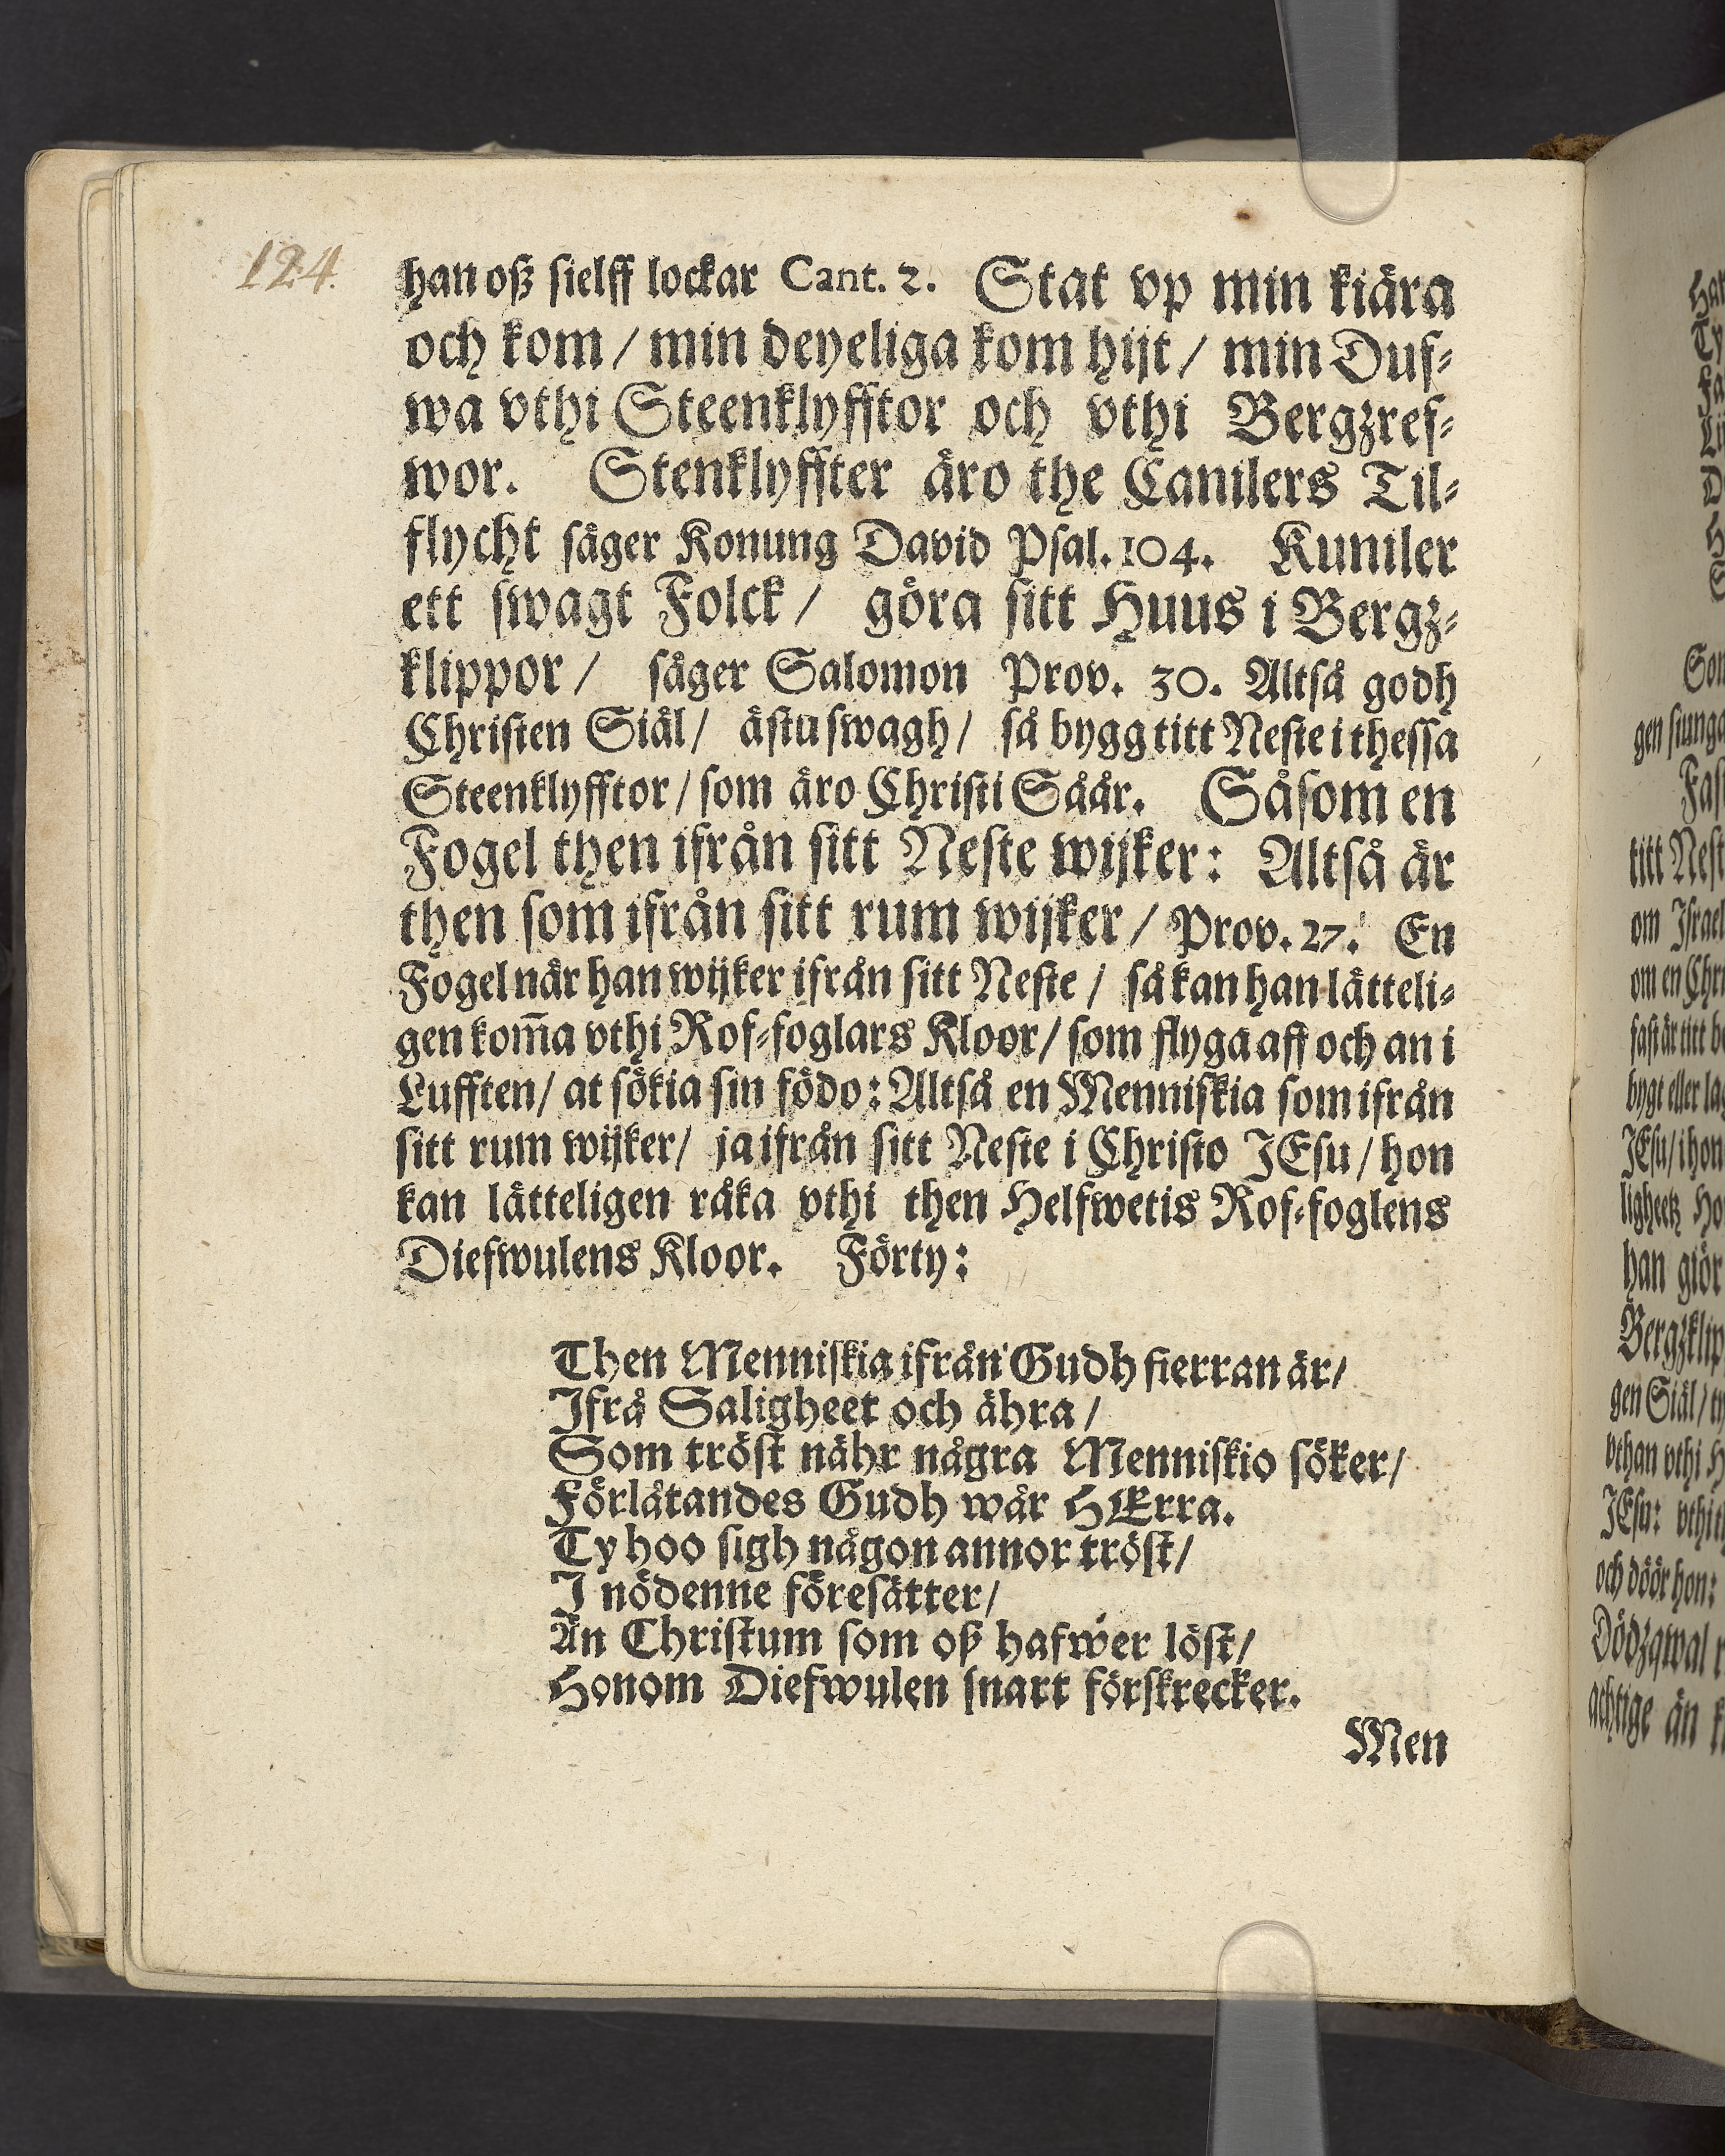 124.
han oß sielff lockar Cant. 2. Stat vp min kiära
och kom / min deyeliga kom hijt / min Duf-
wa vthi Steenklyfftor och vthi Bergzref-
wor. Stenklyffter äro the Canilers Til-
flycht säger Konung David Psal. 104. Kuniler
ett swagt Folck / göra sitt Huus i Bergz-
klippor / säger Salomon Prov. 30. Altså godh
Christen Siäl / ästu swagh / så bygg titt Neste i thessa
Steenklyfftor / som äro Christi Såår. Såsom en
Fogel then ifrån sitt Neste wijker: Altså är
then som ifrån sitt rum wijker / Prov. 27. En
Fogel när han wijker ifrån sitt Neste / så kan han lätteli-
gen kom̃a vthi Rof-foglars Kloor / som flyga aff och an i
Lufften / at sökia sin födo: Altså en Menniskia som ifrån
sitt rum wijker / ja ifrån sitt Neste i Christo JEsu / hon
kan lätteligen råka vthi then Helfwetis Rof-foglens
Diefwulens Kloor. Förty:
Then Menniskia ifrån Gudh fierran är /
Ifrå Saligheet och ähra /
Som tröst nähr några Menniskio söker /
Förlåtandes Gudh wår HErra.
Ty hoo sigh någon annor tröst /
I nödenneföresätter /
Än Christum som oß hafwer löst /
Honom Diefwulen snart förskrecker.
Men